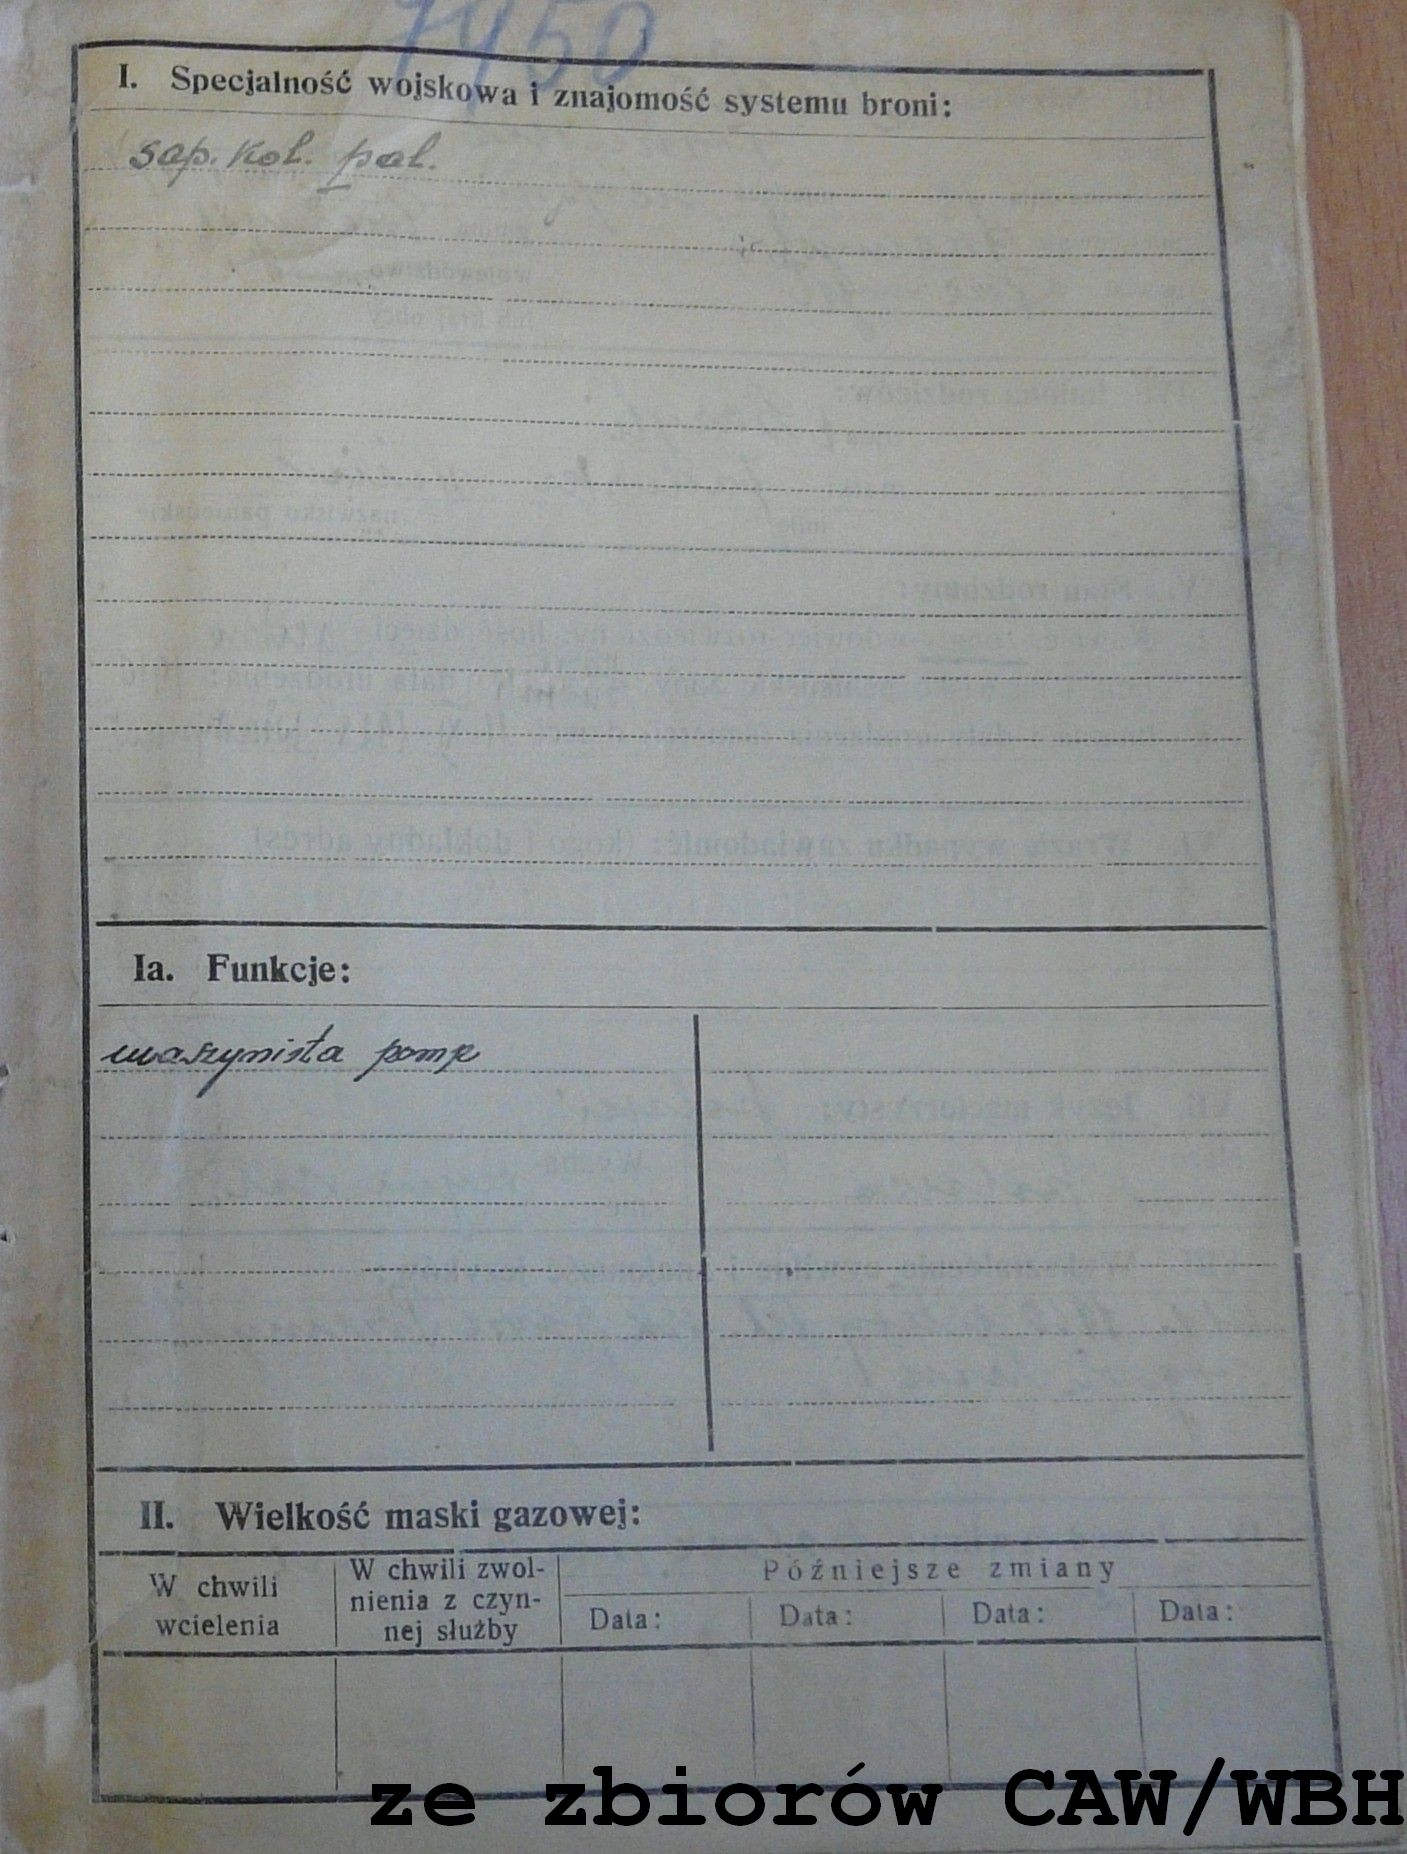 7450
I. Specjalność wojskowa i znajomość systemu broni:
sap. kol. pal.
Ia. Funkcje:
maszynista pomp
II. Wielkość maski gazowej:
W chwili wcielenia
W chwili zwol-
nienia z czyn-
nej służby
Późniejsze zmiany
Data: Data: Data: Data:
ze zbiorów CAW/WBH